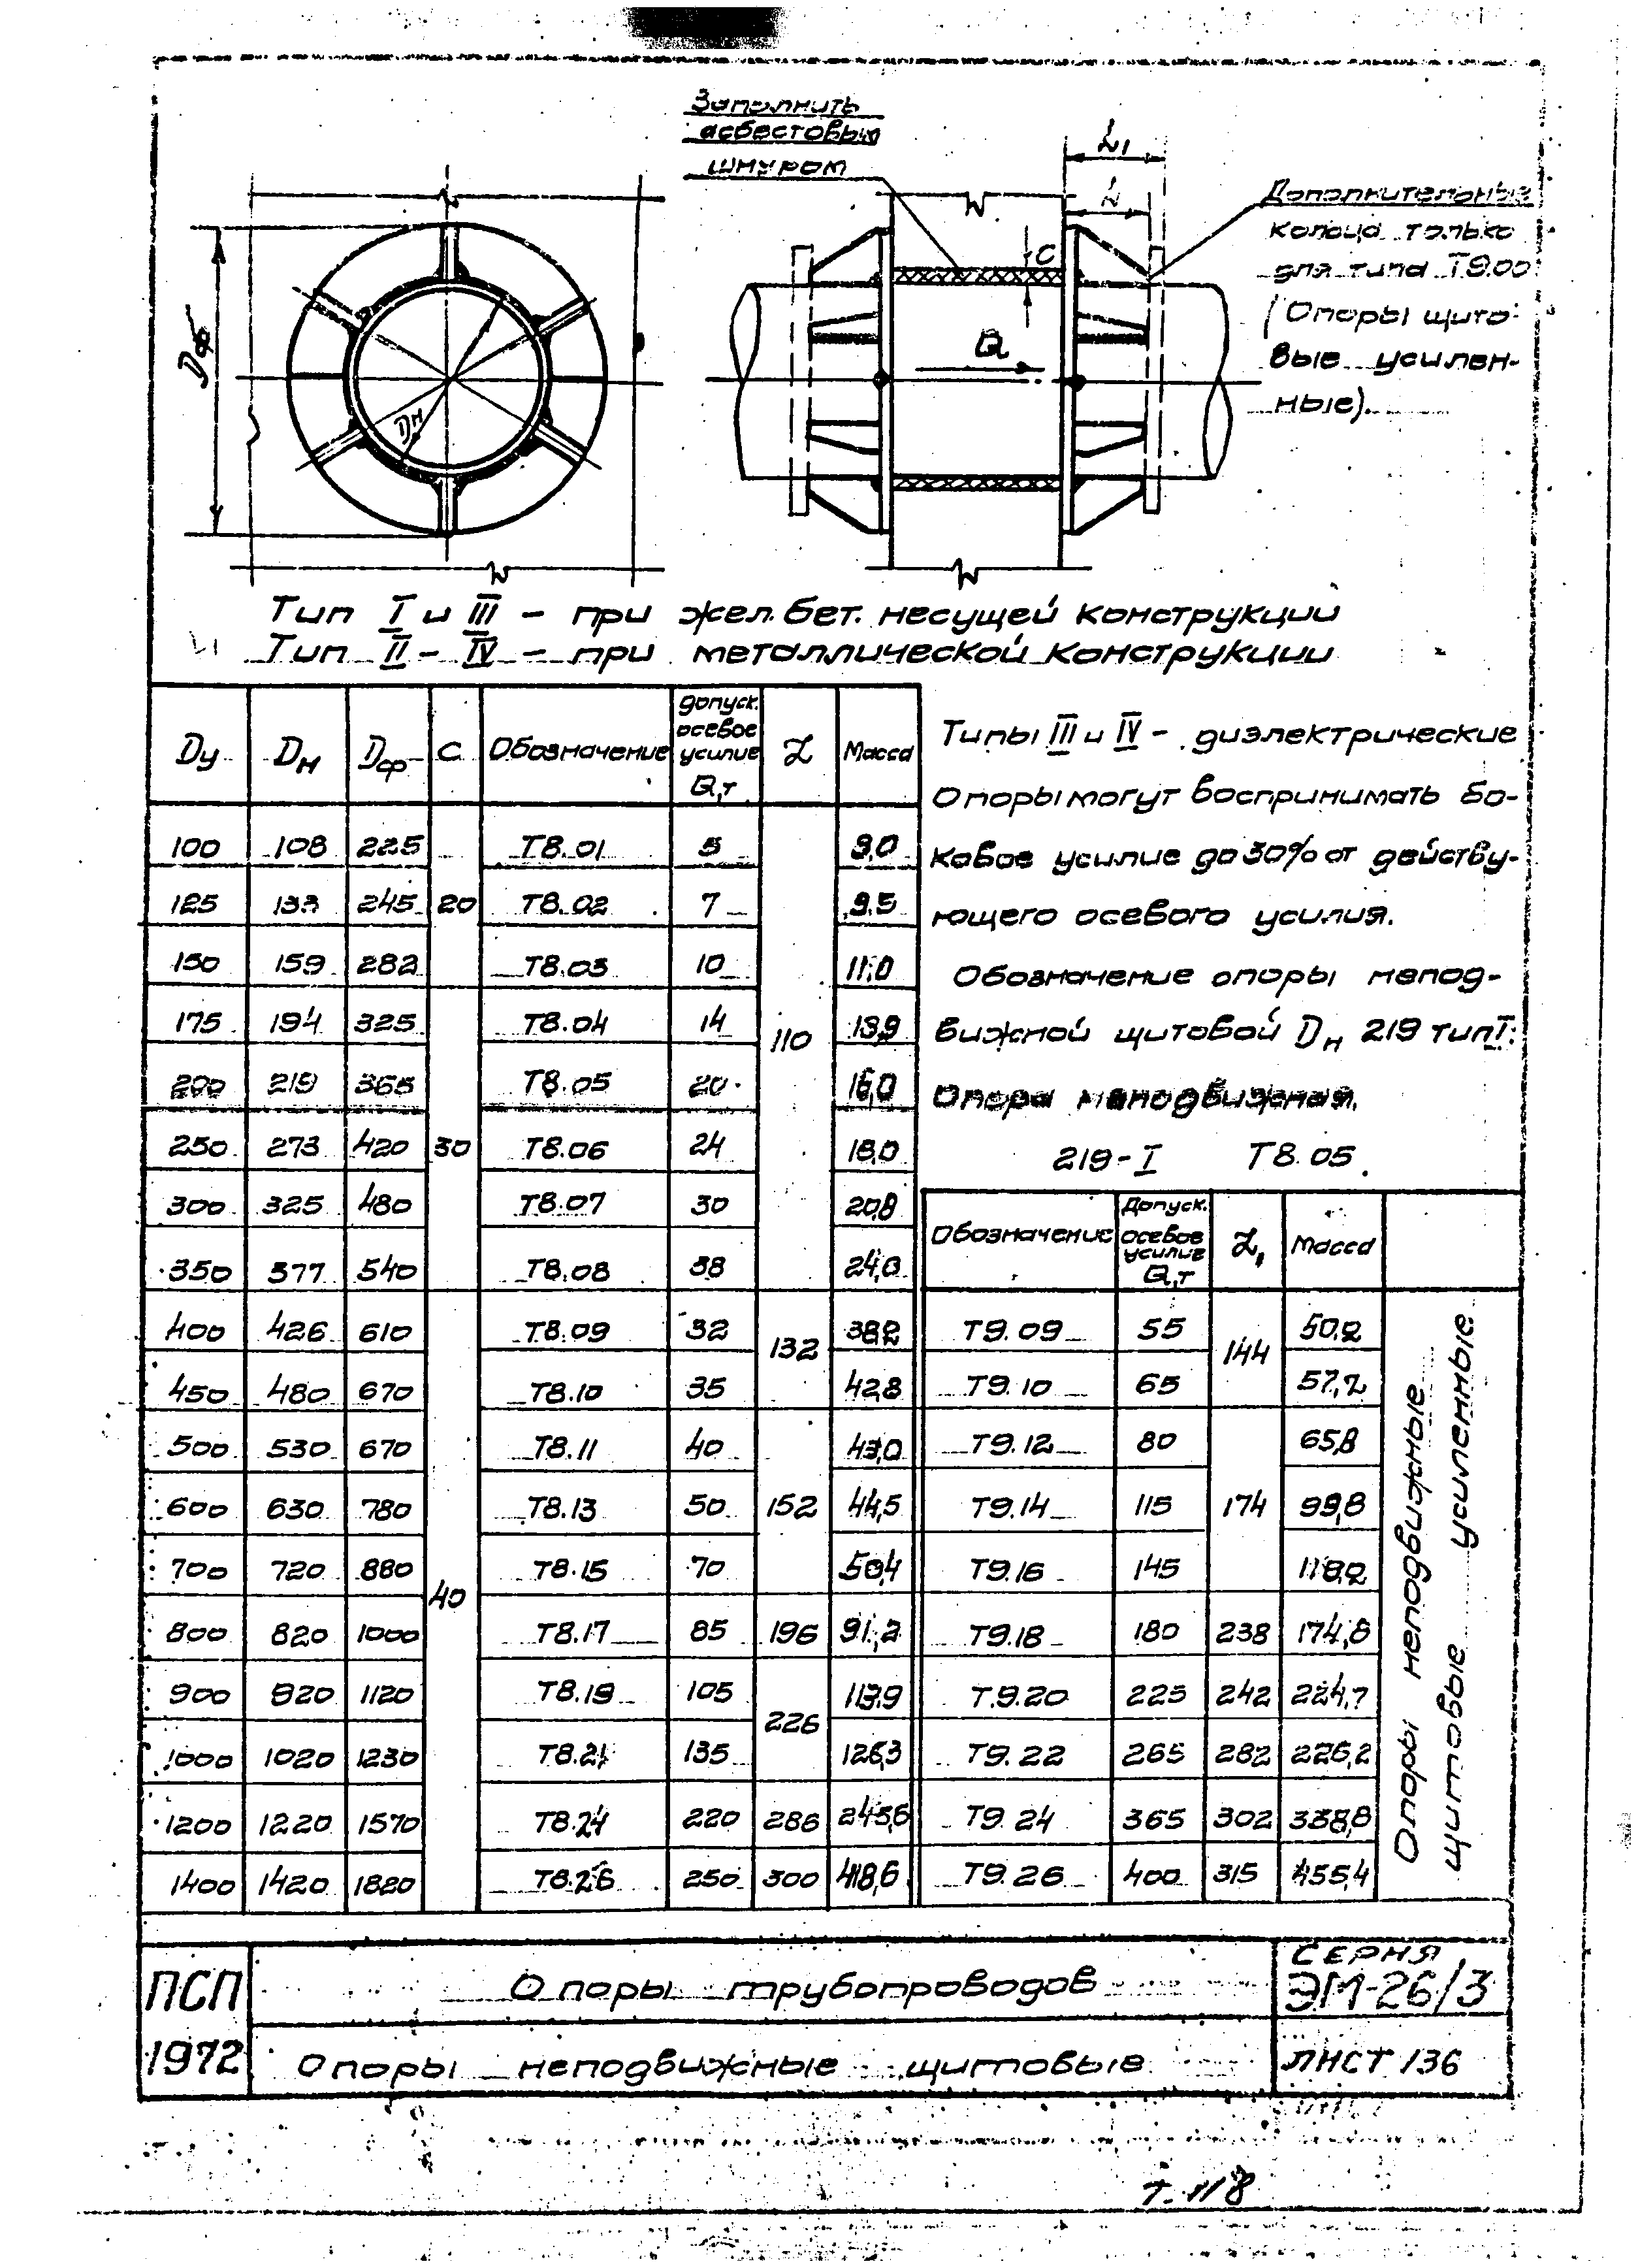 Заполнить
асбестовым
шнуром
L₁
L
Дополнительные
кольца только
для типа Т9.00
(Опоры щито-
вые усилен-
ные).
C
Q
Dф
Dн
Тип I и III - при жел.бет. несущей конструкции
Тип II - IV - при металлической конструкции
Dу Dн Dф C Обозначение допуск. осевое усилие Q,т L Масса
100 108 225 Т8.01 5 9,0
125 133 245 20 Т8.02 7 9,5
150 159 282 Т8.03 10 11,0
175 194 325 Т8.04 14 110 13,9
200 219 365 Т8.05 20 16,0
250 273 420 30 Т8.06 24 18,0
300 325 480 Т8.07 30 20,8
350 377 540 Т8.08 38 24,0
400 426 610 Т8.09 32 132 38,2
450 480 670 Т8.10 35 42,8
500 530 670 Т8.11 40 43,0
600 630 780 Т8.13 50 152 44,5
700 720 880 Т8.15 70 50,4
800 820 1000 40 Т8.17 85 196 91,2
900 920 1120 Т8.19 105 226 113,9
1000 1020 1230 Т8.21 135 126,3
1200 1220 1570 Т8.24 220 286 245,6
1400 1420 1820 Т8.26 250 300 418,6
Типы III и IV - диэлектрические
Опоры могут воспринимать бо-
ковое усилие до 30% от действу-
ющего осевого усилия.
Обозначение опоры непод-
вижной щитовой Dн 219 тип I:
Опора неподвижная
219-I Т8.05
Обозначение Допуск. осевое усилие Q,т L₁ Масса
Т9.09 55 144 50,2
Т9.10 65 57,2
Т9.12 80 65,8
Т9.14 115 174 99,8
Т9.16 145 118,2
Т9.18 180 238 174,8
Т.9.20 225 242 224,7
Т9.22 265 282 226,2
Т9.24 365 302 338,8
Т9.26 400 315 455,4
Опоры неподвижные
щитовые усиленные
ПСП
1972
Опоры трубопроводов
Опоры неподвижные щитовые
СЕРИЯ
ЭМ-26/3
ЛИСТ 136
Т. 118